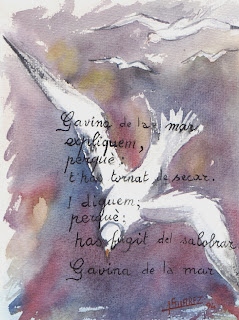 Gavina de la mar
expliquem,
perquè:
t'has tornat de secar.
I diguem;
perquè:
has fugit del salobrar
Gavina de la mar